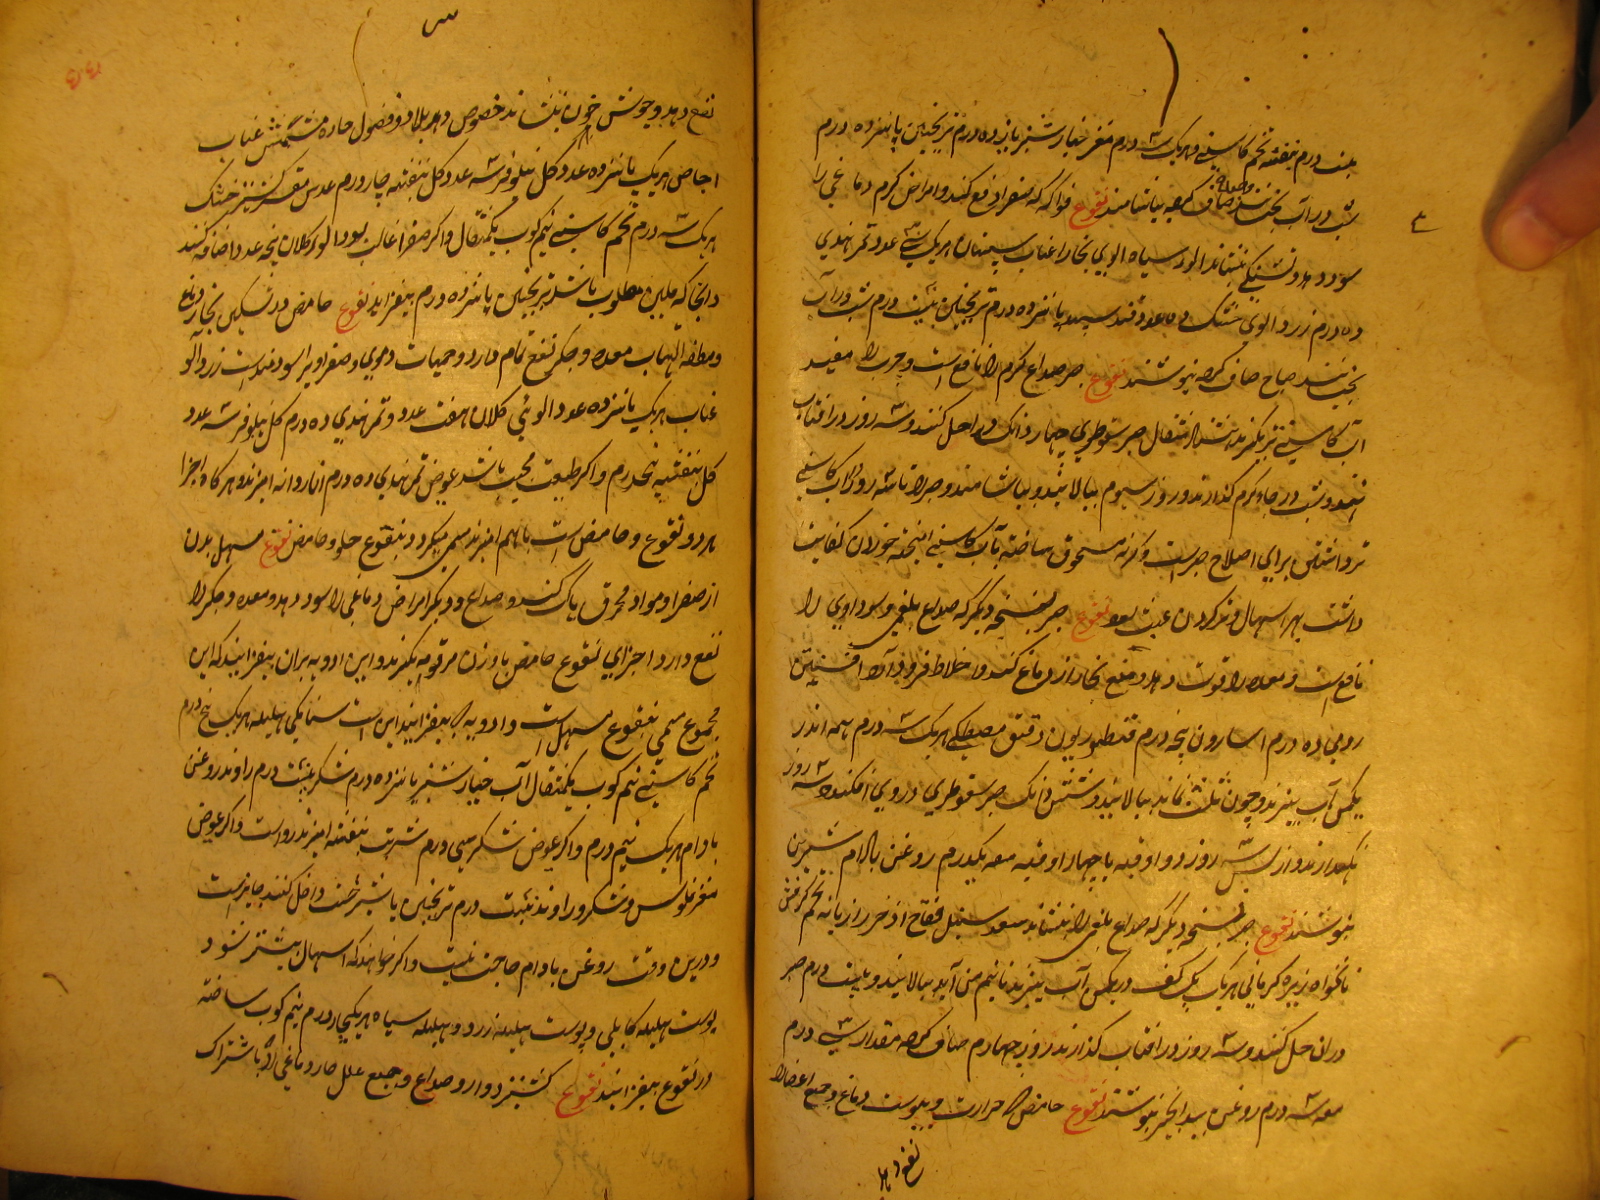 بیست درم بنفشه تخم کاسنی هریک سه درم مغز خیارشنبر پانزده درم ترنجبین پانزده درم
شب در آب صاف کرده بیاشامند نقوع فواکه که صفرا دفع کند و امراض گرم دماغی را
سود دهد و تشنگی بنشاند آلوی سیاه آلوی بخارا عناب سپستان هریک سی عدد تمر هندی
ده درم زردآلوی خشک ده عدد قند سپید پانزده درم ترنجبین بیست درم شب در آب
صباح صاف کرده بنوشند نقوع صبر صداع گرم را نافع است و جرب را مفید
آب کاسنی تر بگیرند مثقال صبر سقوطری چهار دانگ در آن حل کنند و سه روز در آفتاب
نهند و شب در جای گرم گذارند و روز سیوم بپالایند و بیاشامند و صبر را تا سه روز در آب کاسنی
تر داشتن برای اصلاح صبر است وگرنه مسحوق ساخته بآب کاسنی آمیخته خوردن کفایت
داشت بهر اسهال نقوع صبر بنسخه دیگر که صداع بلغمی و سوداوی را
نافع است و معده را قوت دهد و منع بخار از دماغ کند و اخلاط فرود آرد افسنتین
رومی ده درم اسارون پنج درم قنطوریون دقیق مصطکی هریک سه درم همه اندر
یکمن آب بپزند و چون ثلث بماند بپالایند و شش دانگ صبر سقوطری در وی افکنند و سه روز
نگهدارند و از پس سه روز دو اوقیه یا چهار اوقیه معه یکدرم روغن بادام شیرین
بنوشند نقوع صبر بنسخه دیگر که صداع بلغمی را بنشاند سعد سنبل فقاح اذخر رازیانه تخم کرفس
نانخواه زیره کرمانی هریک یک کف در یکمن آب بپزند تا نیم من آید بپالایند و بیست درم صبر
در آن حل کنند و سه روز در آفتاب گذارند روز چهارم صاف کرده مقدار سی درم
معه سه درم روغن بیدانجیر بنوشند نقوع حامض که حرارت و یبوست دماغ و جمیع اعضا را
نفع دهد
نفع دهد و جوش خون بنشاند خصوص در بلاد و فصول حاره مشمش عناب
اجاص هریک پانزده عدد گل نیلوفر سه عدد گل بنفشه چار درم عدس مقشر کشنیز خشک
هریک سه درم تخم کاسنی نیم کوب یکمثقال و اگر صفرا غالب بود آلوی کلان پنج عدد اضافه کنند
و آنجا که تلیین مطلوب باشد ترنجبین پانزده درم بیفزایند نقوع حامض در تسکین بخار دماغ
و مطفی التهاب معده و جگر نفع تمام دارد و حمیات دموی و صفراوی را سودمند است زردآلو
عناب هریک پانزده عدد آلوی کلان هفت عدد و تمر هندی ده درم گل نیلوفر سه عدد
گل بنفشه پنجدرم و اگر طبیعت مجیب باشد عوض تمر هندی ده درم اناردانه آمیزند و هرگاه اجزا
هر دو نقوع و حامض است باهم آمیزند مسمی میگردد بنقوع حلو و حامض نقوع مسهل بدن
از صفرا و مواد محرق پاک کند و صداع و دیگر امراض دماغی را سود دهد و معده و جگر را
نفع دارد اجزای نقوع حامض باوزن مرقومه بگیرند و این ادویه بران بیفزایند که این
مجموع مسمی بنقوع مسهل است و ادویه که بیفزایند این است سنا مکی هلیله هریک پنج درم
تخم کاسنی نیم کوب یکمثقال آب خیارشنبر پانزده درم شکر بیست درم راوند روغن
بادام هریک نیم درم و اگر عوض شکر سی درم شربت بنفشه آمیزند رواست و اگر عوض
مغز فلوس و شکر و راوند بیست درم ترنجبین یا شیرخشت داخل کنند جایز است
و درین وقت روغن بادام حاجت نیست و اگر خواهند که اسهال بیشتر شود
پوست هلیله کابلی و پوست هلیله زرد و هلیله سیاه هریک چهار درم نیم کوب ساخته
در نقوع بیفزایند نقوع کشنیز دوار و صداع و جمیع علل حار دماغی را که باشتراک